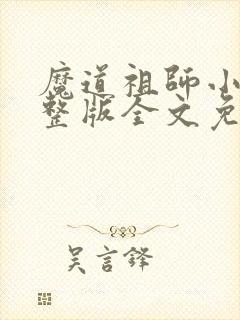 魔道祖師小
整版全文免
吴言鋒